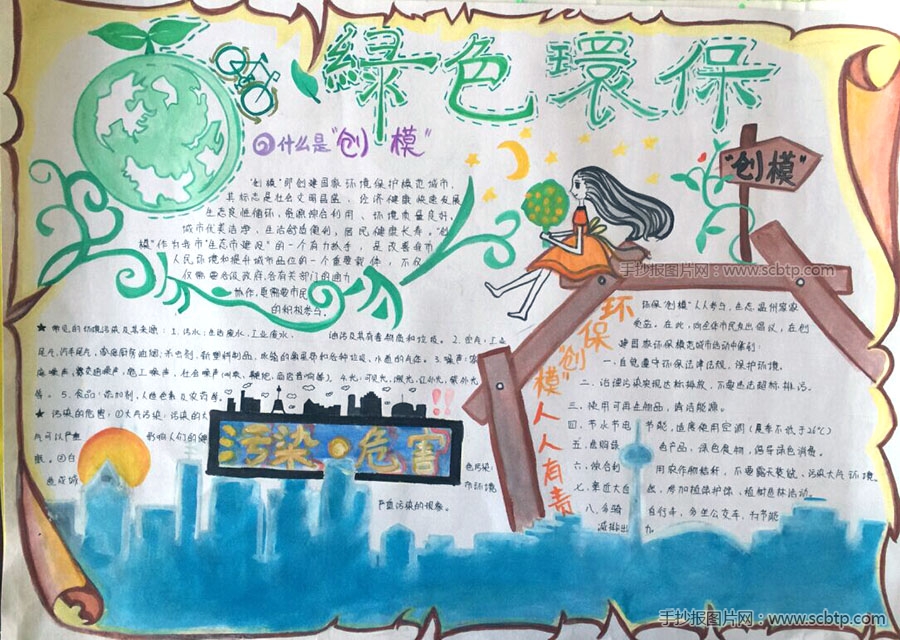 綠色環保
什么是"创模"
"创模"即创建国家环境保护模范城市,
其标志是社会文明昌盛,经济健康快速发展
生态良性循环,资源综合利用、环境质量良好,
城市优美洁净,生活舒适便利,居民健康长寿。"创
模"作为我市"生态市建设"的一个有力抓手,是改善我市
人民环境和提升城市品位的一个重要载体,不仅
仅需要各级政府,各有关部门的通力
协作,更需要市民
的积极参与。
"创模"
手抄报图片网:www.scbtp.com
环保"创模"人人有责
环保"创模"人人参与,生态温州家家
受益。在此,向全体市民发出倡议,在创
建国家环保模范城市活动中做到:
一.自觉遵守环保法律法规,保护环境。
二.治理污染实现达标排放,不要违法超标排污。
三.使用可再生物品,清洁能源。
四.节水节电 节能,适席使用空调(夏季不低于26℃)
五.选购绿 色产品、绿色食物,倡导绿色消费。
六.综合利 用农作物秸秆,不要露天焚烧,污染大气环境
七.亲近大自 然,参加植保护体、植树造林活动。
八.多骑 自行车,多坐公交车,为节能
减排出 力
★ 常见的环境污染及其来源:1.污水:生活废水,工业废水、 油污及其有毒物质和垃圾。2.空气:工业
尾气,汽车尾气,家庭厨房油烟、杀虫剂、新塑料制品,浓烟的粪尿 和各种垃圾,小道的气体。3.噪声:家
庭噪声,露天噪声,施工噪声,社会噪声(叫卖、鞭炮、高音音响等)。4.光:可见光,激光,红外光,紫外光
等。5.食品:添加剂,人造色素及农药等
★ 污染的危害:①大气污染:污染的大
气可以严重 影响人们的健
康。②白 色污染:
造成城 市环境
严重污染的现象。
污染·危害
!!
手抄报图片网:www.scbtp.com